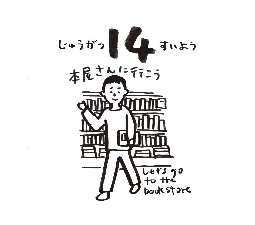 じゅうがつ 14 すいよう
本屋さんに行こう
Let's go
to the
bookstore